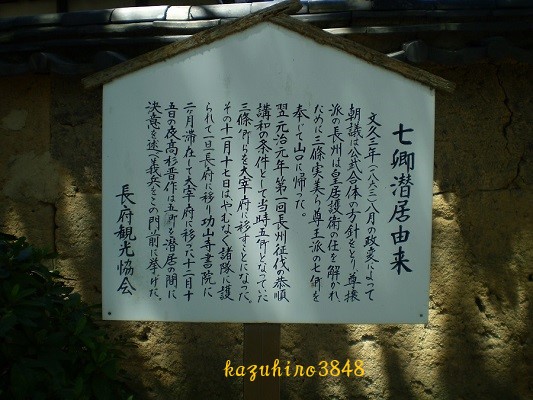 七卿潜居由来
文久三年(一八六三)八月の政変によって
朝議は公武合体の方針をとり尊攘
派の長州は皇居護衛の任を解かれ
ために三條実美ら尊王派の七卿を
奉じて山口に帰った。
翌元治元年第一回長州征伐の恭順
講和の条件として当時五卿となっていた
三條卿らを大宰府に移すことになった。
その十一月十七日はやむなく諸隊に護
られて一旦長府に移り功山寺書院に
二ヶ月滞在して大宰府に移った十二月十
五日の夜高杉晋作は五卿を潜居の間に
決意を述べ義兵をこの門前に挙げた。
長府観光協会
kazuhiro3848